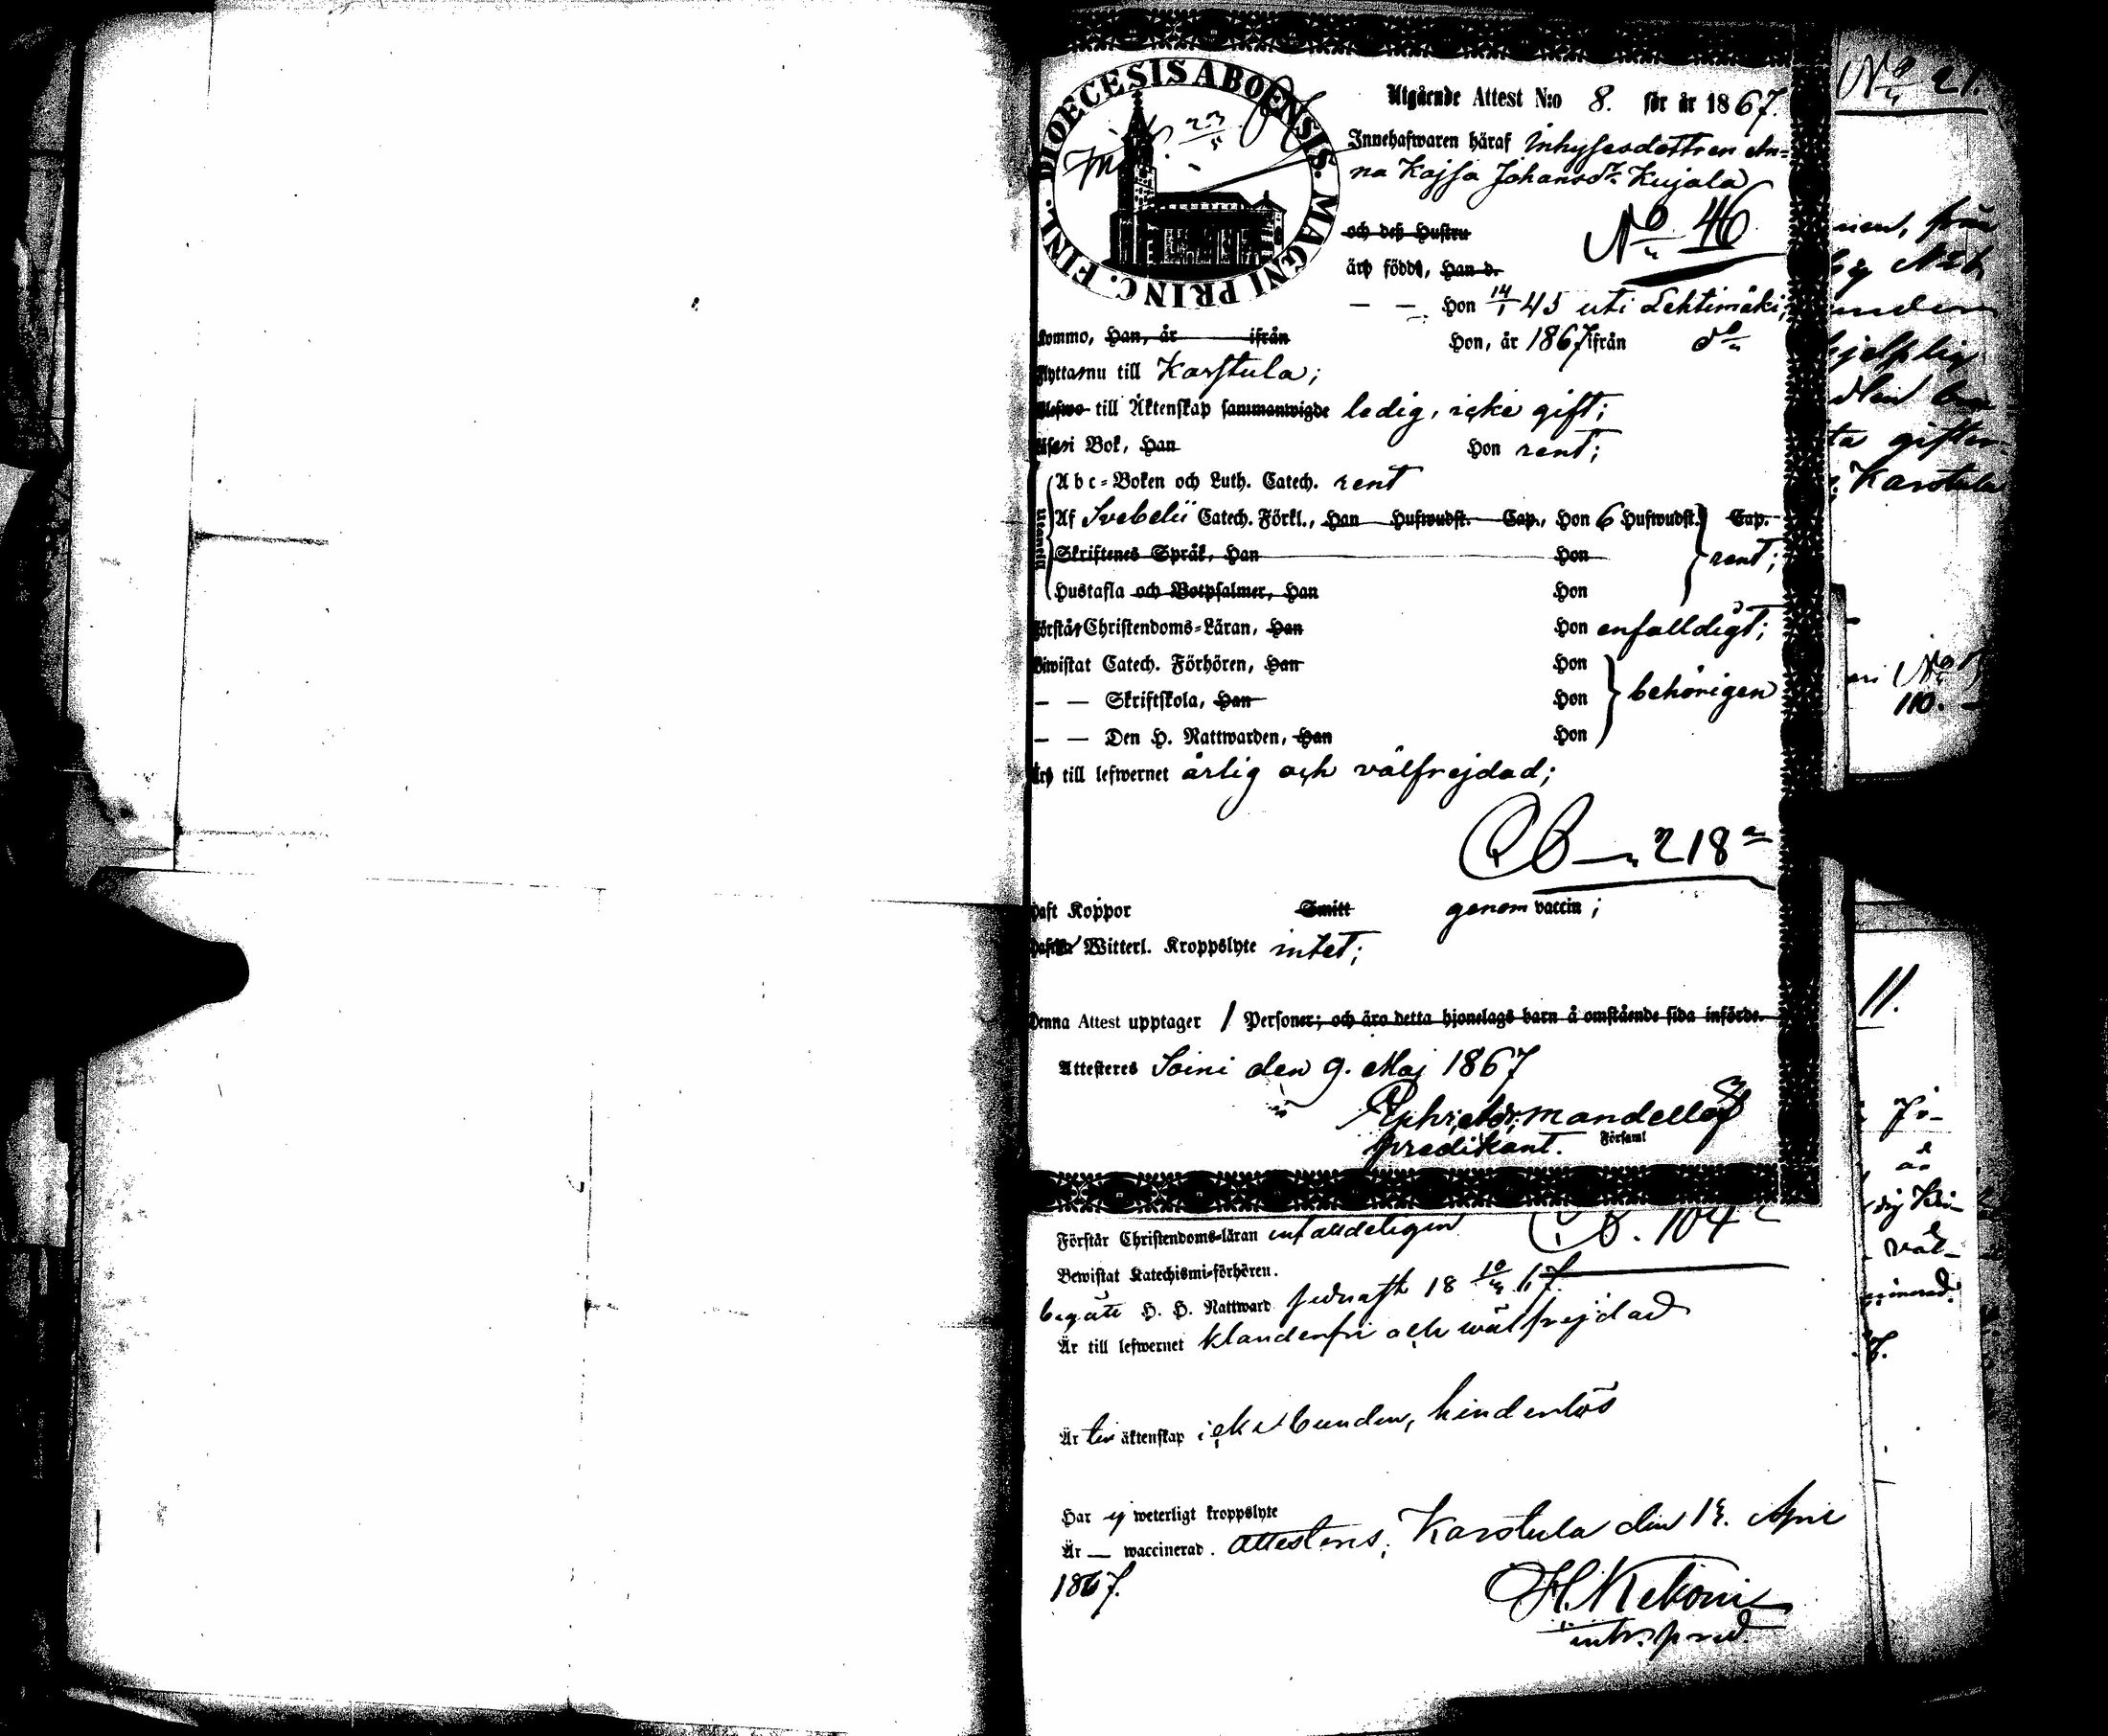 DIOECESIS ABOENSIS. MAGNI PRINC. FINL.
Utgående Attest N:o 8. för år 1867.
23/5
Innehafwaren häraf Inhysesdottren An-
na Kajsa Johansdr. Kujala
och deß Hustru
No 46
äro födde, Han d.
— — Hon 14/1 45 uti Lehtimäki;
komne, Han, år ifrån Hon, år 1867 ifrån do
flytta nu till Karstula;
till Äktenskap sammanwigde ledig, icke gift;
Läsa i Bok, Han Hon rent;
Abc-Boken och Luth. Catech. rent
Af Svebelii Catech. Förkl., Han Hufwudst. Cap., Hon 6 Hufwudst. Cap.
Skriftenes Språk, Han Hon rent;
Hustafla och Botpsalmer, Han Hon
Förstår Christendoms-Läran, Han Hon enfalldigt;
Biwistat Catech. Förhören, Han Hon
— — Skriftskola, Han Hon behörigen
— — Den H. Nattwarden, Han Hon
Äro till lefwernet ärlig och välfrejdad;
CB 218
Haft Koppor Smitt genom vaccin;
Witterl. Kroppslyte intet;
Denna Attest upptager 1 Personer; och äro detta hjonelags barn å omstående sida införde.
Attesteras Soini den 9. Maj 1867
Mandellöf
predikant. Församl
Förstår Christendoms-läran enfalldeligen CB. 104
Bewistat Katechismi-förhören.
begått H. H. Nattward 18 10/4 67.
Är till lefwernet klanderfri och wälfrejdad
Är till äktenskap icke bunden, hinderlös
Har ej weterligt kroppslyte
Är — waccinerad. Attesteras, Karstula den 14. April
1867.
H. Kekoni
intr. pred.
No 21.
Karstula
110.
11.